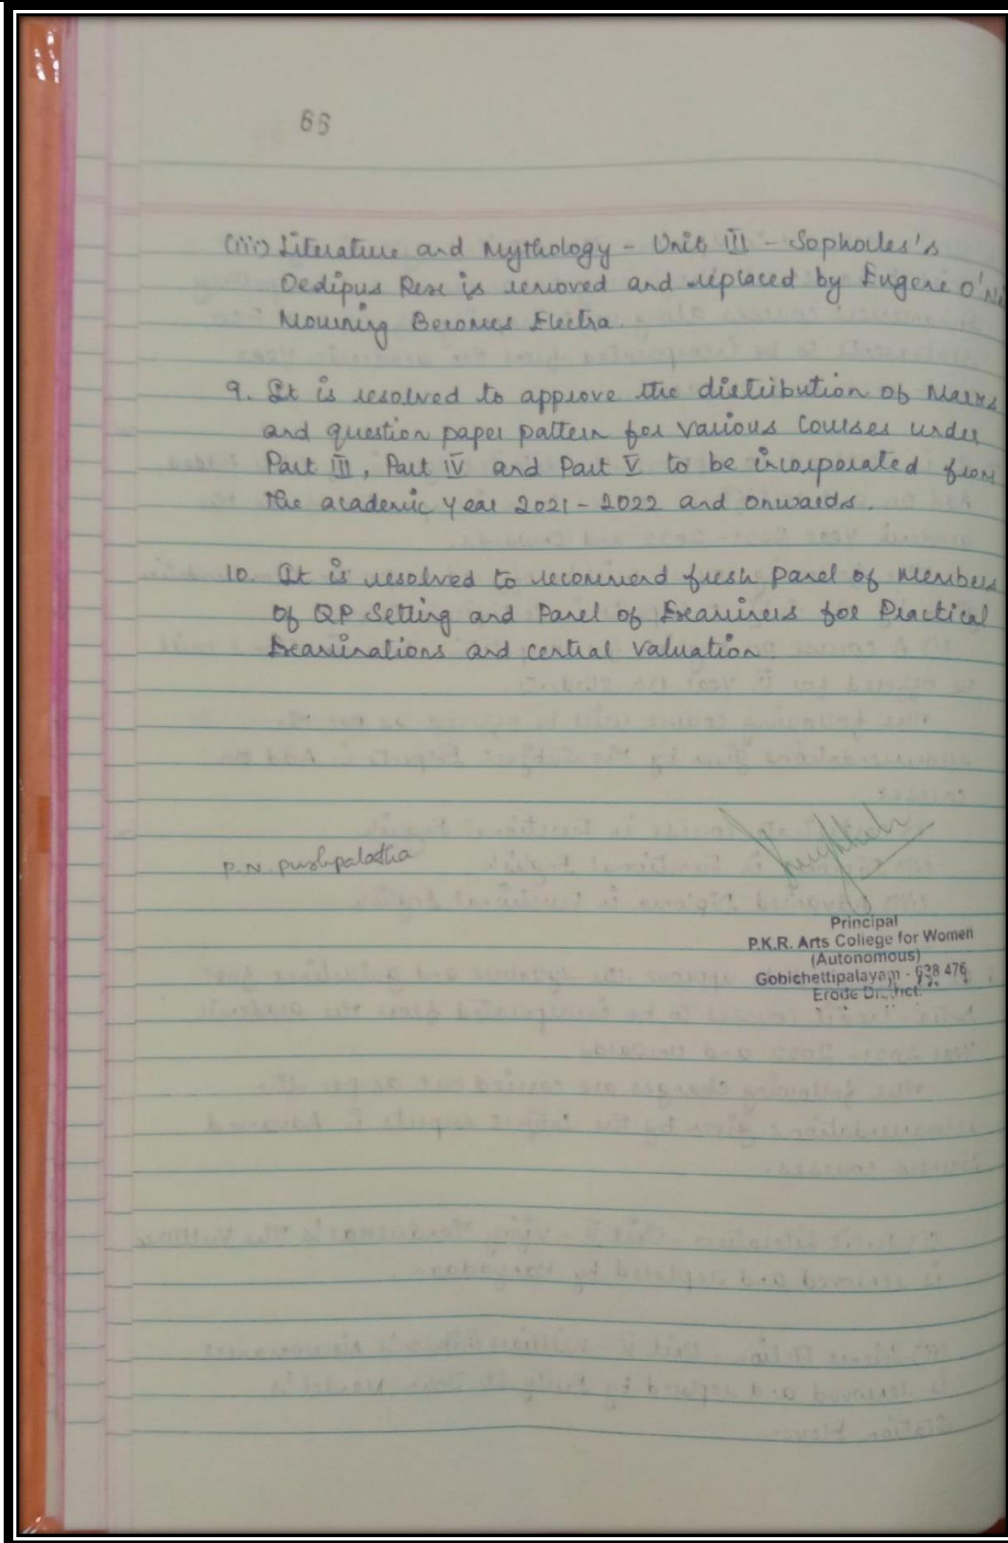 66
(iii) Literature and Mythology - Unit III - Sophocles's
Oedipus Rex is removed and replaced by Eugene O'Ne
Mourning Becomes Electra.
9. It is resolved to approve the distribution of Marks
and question paper pattern for various Courses under
Part III, Part IV and Part V to be incorporated from
the academic year 2021-2022 and onwards.
10. It is resolved to recommend fresh panel of members
of QP Setting and Panel of Examiners for Practical
Examinations and central valuation.
P.N. Pushpalatha
Principal
P.K.R. Arts College for Women
(Autonomous)
Gobichettipalayam - 638 476
Erode District.